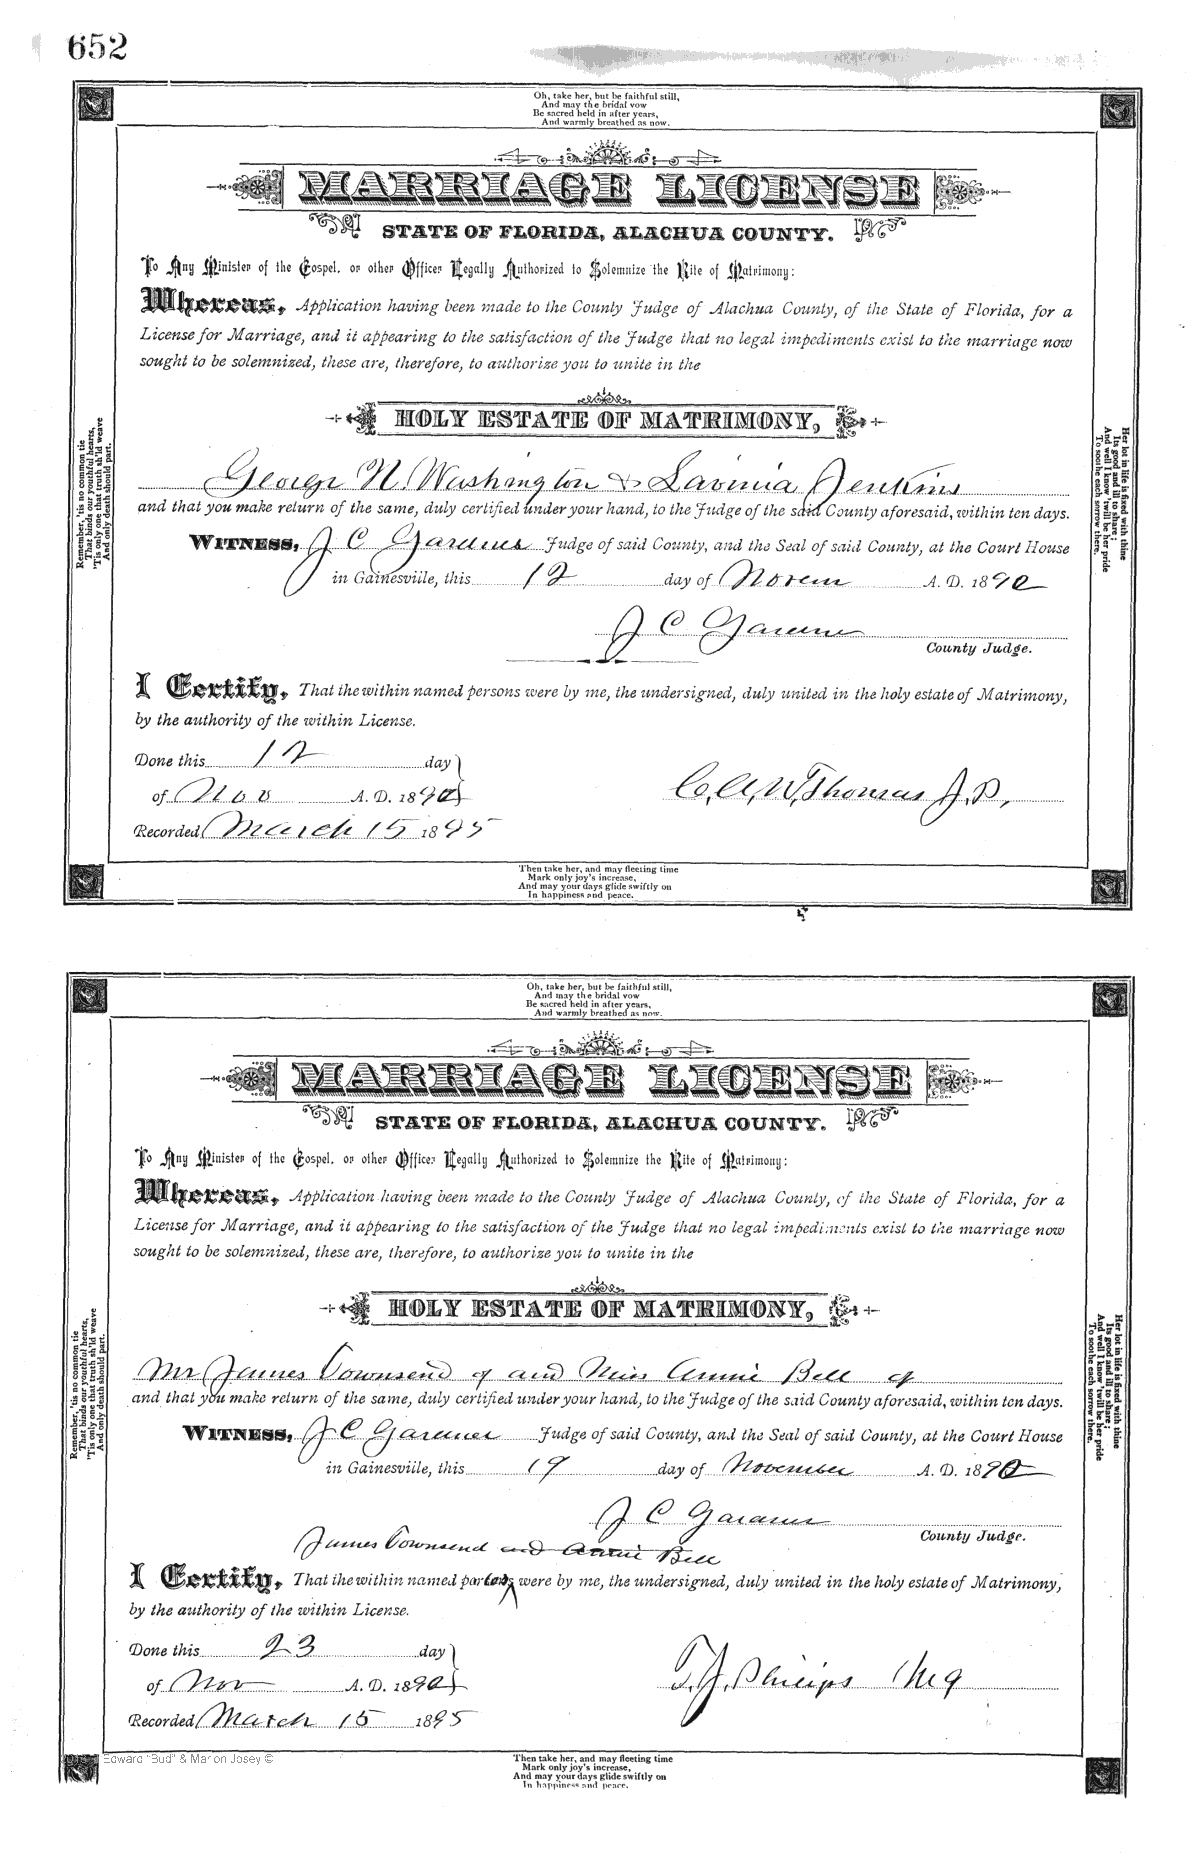 652
Oh, take her, but be faithful still,
And may the bridal vow
Be sacred held in after years,
And warmly breathed as now.
MARRIAGE LICENSE
STATE OF FLORIDA, ALACHUA COUNTY.
To Any Minister of the Gospel, or other Officer Legally Authorized to Solemnize the Rite of Matrimony:
Whereas, Application having been made to the County Judge of Alachua County, of the State of Florida, for a
License for Marriage, and it appearing to the satisfaction of the Judge that no legal impediments exist to the marriage now
sought to be solemnized, these are, therefore, to authorize you to unite in the
HOLY ESTATE OF MATRIMONY,
George N. Washington & Lavinia Jenkins
and that you make return of the same, duly certified under your hand, to the Judge of the said County aforesaid, within ten days.
WITNESS, J C Gardner Judge of said County, and the Seal of said County, at the Court House
in Gainesville, this 12 day of Novem A. D. 1892
J C Gardner
County Judge.
I Certify, That the within named persons were by me, the undersigned, duly united in the holy estate of Matrimony,
by the authority of the within License.
Done this 12 day
of Nov A. D. 1892
C. A. W. Thomas J. P.
Recorded March 15 1895
Remember, 'tis no common tie
That binds our youthful hearts,
'Tis only one that truth sh'ld weave
And only death should part.
Her lot in life is fixed with thine
Its good and ill to share;
And well I know 'twill be her pride
To soothe each sorrow there.
Then take her, and may fleeting time
Mark only joy's increase,
And may your days glide swiftly on
In happiness and peace.
Oh, take her, but be faithful still,
And may the bridal vow
Be sacred held in after years,
And warmly breathed as now.
MARRIAGE LICENSE
STATE OF FLORIDA, ALACHUA COUNTY.
To Any Minister of the Gospel, or other Officer Legally Authorized to Solemnize the Rite of Matrimony:
Whereas, Application having been made to the County Judge of Alachua County, of the State of Florida, for a
License for Marriage, and it appearing to the satisfaction of the Judge that no legal impediments exist to the marriage now
sought to be solemnized, these are, therefore, to authorize you to unite in the
HOLY ESTATE OF MATRIMONY,
Mr James Townsend of and Miss Annie Bell of
and that you make return of the same, duly certified under your hand, to the Judge of the said County aforesaid, within ten days.
WITNESS, J C Gardner Judge of said County, and the Seal of said County, at the Court House
in Gainesville, this 19 day of November A. D. 1892
J C Gardner
County Judge.
James Townsend and Annie Bell
I Certify, That the within named were by me, the undersigned, duly united in the holy estate of Matrimony,
by the authority of the within License.
Done this 23 day
of Nov A. D. 1892
T. J. Phillips
Recorded March 15 1895
Remember, 'tis no common tie
That binds our youthful hearts,
'Tis only one that truth sh'ld weave
And only death should part.
Her lot in life is fixed with thine
Its good and ill to share;
And well I know 'twill be her pride
To soothe each sorrow there.
Edward "Bud" & Marion Josey ©
Then take her, and may fleeting time
Mark only joy's increase,
And may your days glide swiftly on
In happiness and peace.